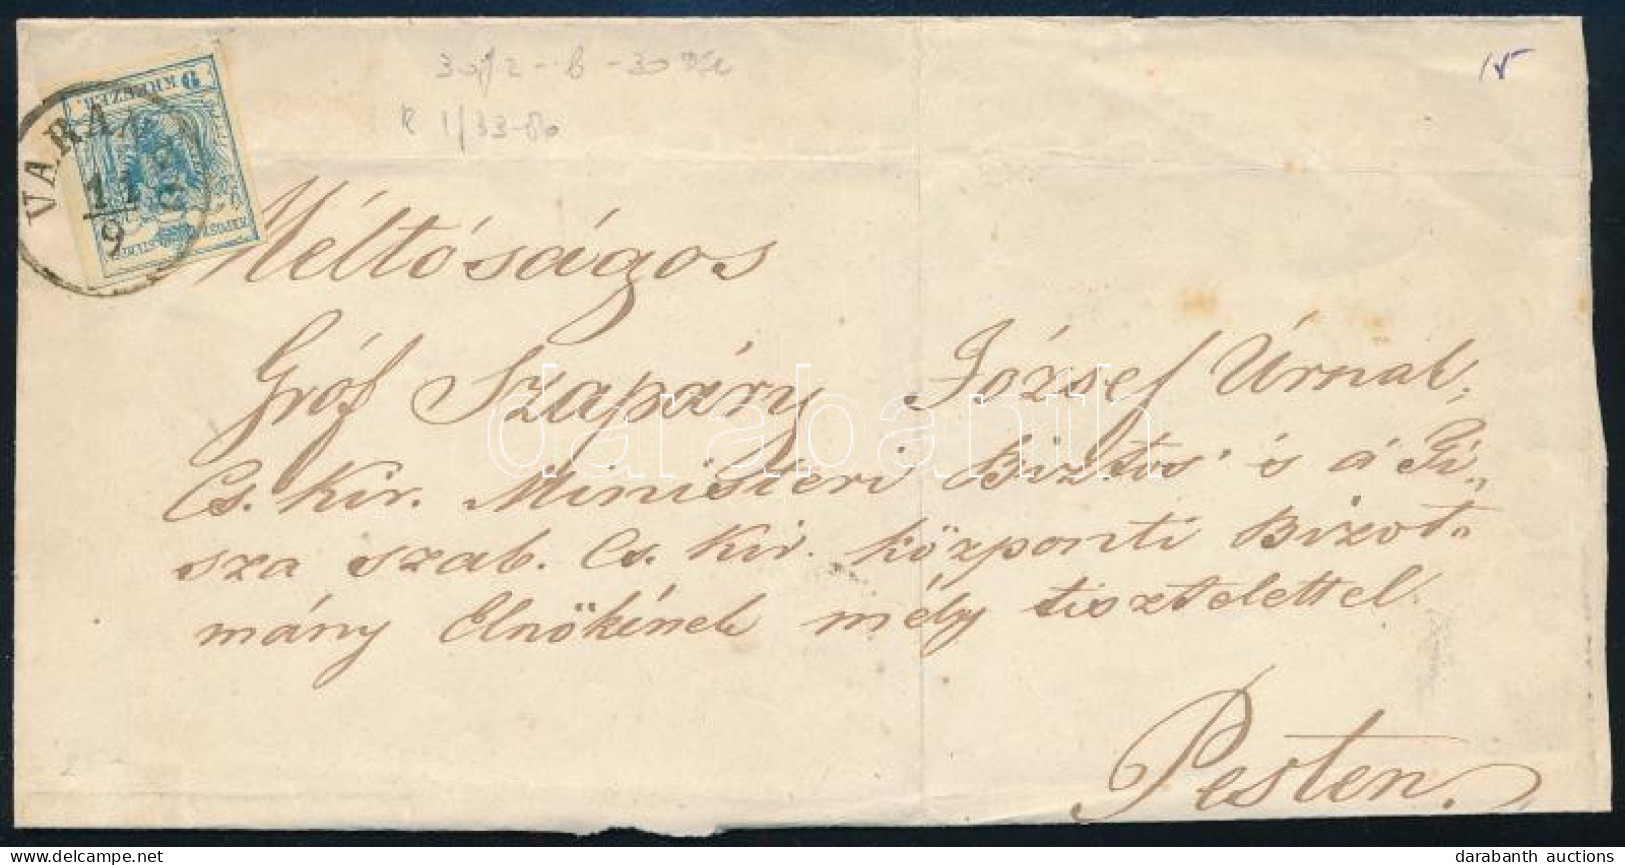 9 KREUZER
VARA
11
9
15
Méltóságos
Gróf Szapáry József Úrnak,
Cs. Kir. Ministeri Biztos és á Ti„
sza szab. Cs. Kir. központi Bizot„
mány Elnökének mély tisztelettel
Pesten.
darabanth
darabanth auctions